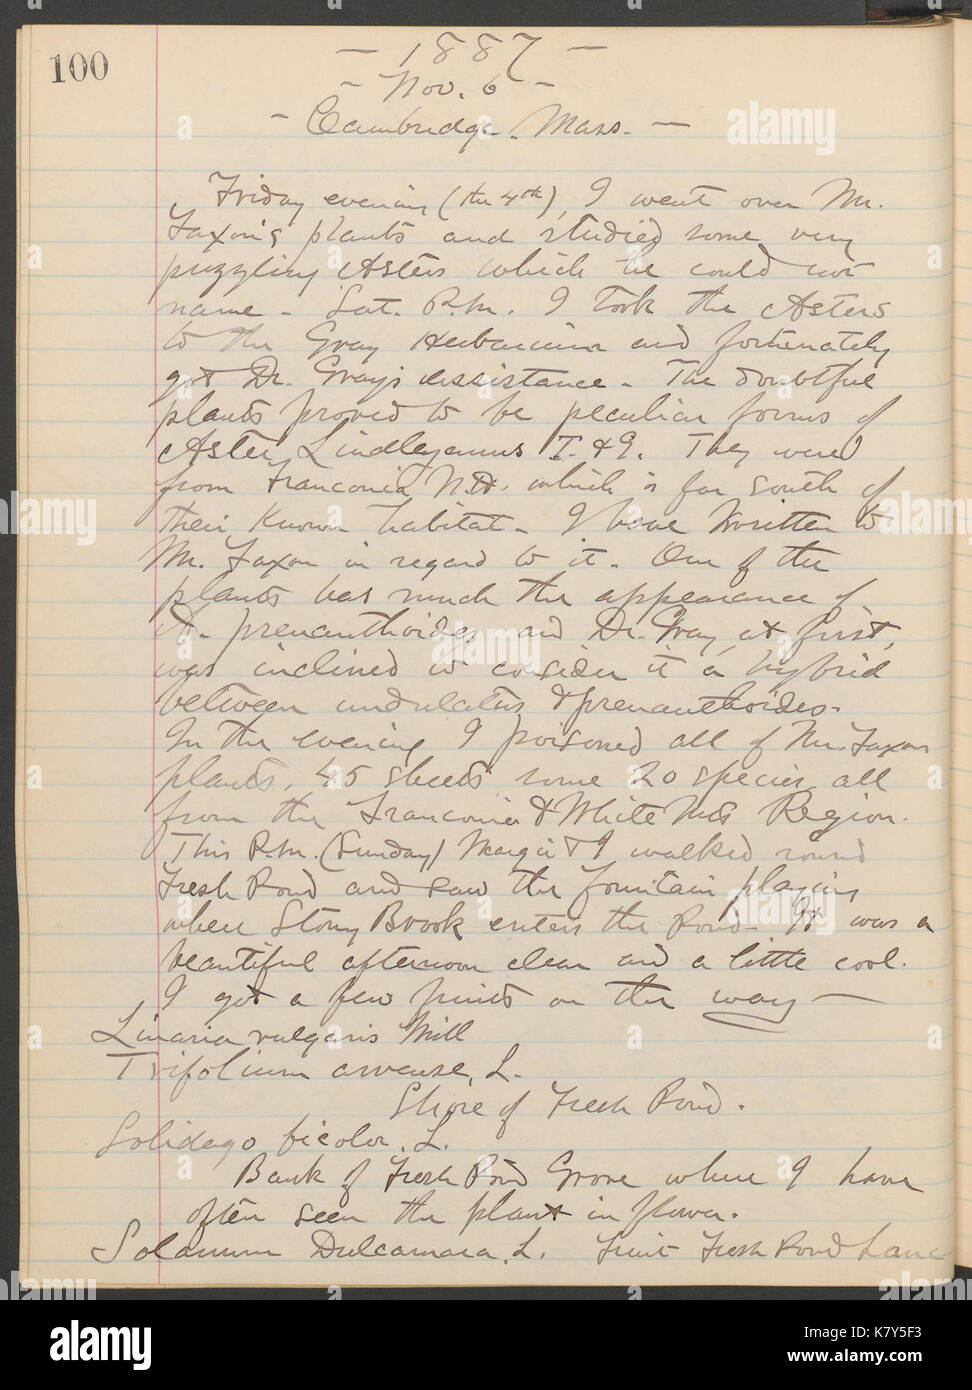 100
- 1887 -
- Nov. 6 -
- Cambridge, Mass. -
Friday evening (the 4th), I went over Mr.
Faxon's plants and studied some very
puzzling Asters which he could not
name - Sat. P.M. I took the Asters
to the Gray Herbarium and fortunately
got Dr. Gray's assistance - The doubtful
plants proved to be peculiar forms of
Aster Lindleyanus T. & G. They were
from Franconia N.H. which is far south of
their known habitat - I have written to
Mr. Faxon in regard to it - One of the
plants has much the appearance of
A. prenanthoides and Dr. Gray, at first,
was inclined to consider it a hybrid
between undulatus & prenanthoides -
In the evening I poisoned all of Mr. Faxon
plants, 45 sheets, some 20 species, all
from the Franconia & White Mts Region.
This P.M. (Sunday) Margie & I walked round
Fresh Pond and saw the fountain playing
where Stony Brook enters the Pond - It was a
beautiful afternoon clear and a little cool.
I got a few fruits on the way -
Linaria vulgaris Mill
Trifolium arvense, L.
Shore of Fresh Pond.
Solidago bicolor, L.
Bank of Fresh Pond Grove where I have
often seen the plant in flower.
Solanum Dulcamara, L. Fruit Fresh Pond Lane
alamy
K7Y5F3
www.alamy.com